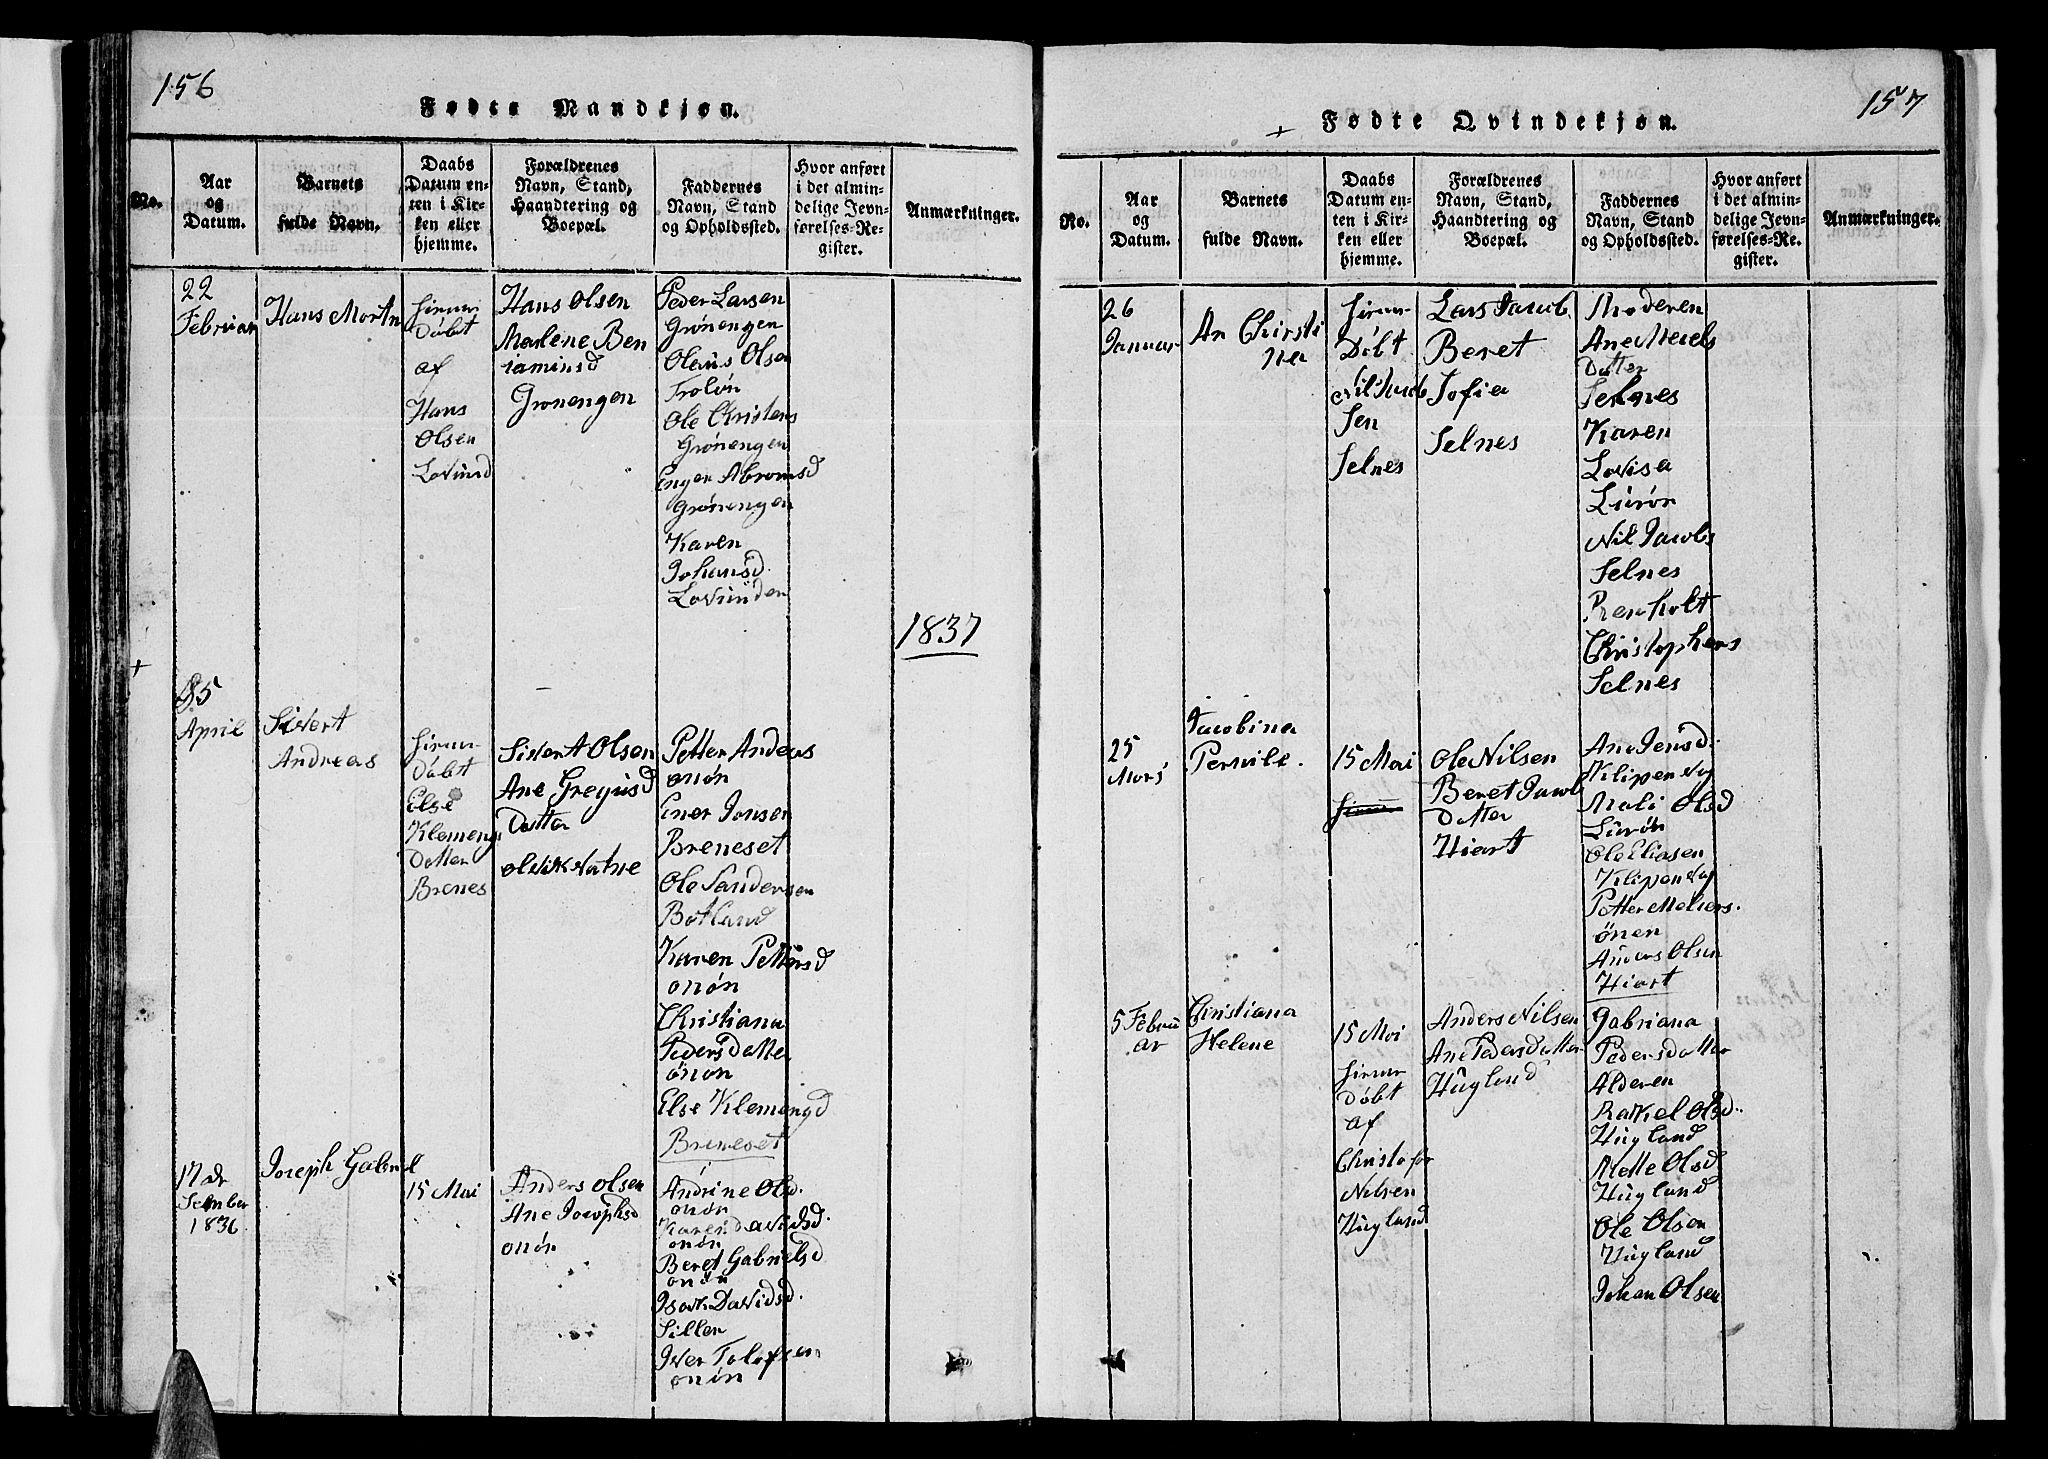 156
Fødte Mandkjøn.
No.
Aar
og
Datum.
Barnets
fulde Navn.
Daabs
Datum en-
ten i Kir-
ken eller
hjemme.
Forældrenes
Navn, Stand,
Haandtering og
Boepæl.
Faddernes
Navn, Stand
og Opholdssted.
Hvor anført
i det almin-
delige Jevn-
førelses-Re-
gister.
Anmærkninger.
22
Februar
Hans Mortn
Døbt
af
Hans
Olsen
Lovund
Hans Olsen
Marlene Ben
iaminsd
Gronengen
Peder Larsen
Grønengen
Oleüs Olsen
Ole Christens
Grønengen
Engen Abromsd
Grønengen
Karen
Johansd.
Lovünden
1837
5
April
Sivert
Andreas
Døbt
Else
Klemens
Datter
Brenes
Sivert Olsen
Ane Gregüsd
Datter
Petter Anders
onøn
Ener Jonsen
Breneset
Ole Sandersen
Botland
Karen Pettersd
onøn
Christiana
Pedersdatter
ønøn
Else Klemengd
Breneset
17 de
1836
Joseph Gabriel
15 Mai
Anders Olsen
Ane Josephsd
onøn
Andrine Olsd.
onøn
Karen Davidsd.
onøn
Beret Gabrielsd
onøn
Isach Davidsd.
Sillen
Iver Tolofsen
onøn
157
Fødte Qvindekjøn.
No.
Aar
og
Datum.
Barnets
fulde Navn.
Daabs
Datum en-
ten i Kir-
ken eller
hjemme.
Forældrenes
Navn, Stand,
Haandtering og
Boepæl.
Faddernes
Navn, Stand
og Opholdssted.
Hvor anført
i det almin-
delige Jevn-
førelses-Re-
gister.
Anmærkninger.
26
Januar
An Chirsti
na
Døbt
Nil Jacob
Sen
Selnes
Lars Jacob.
Beret
Sofia
Selnes
Moderen
Datter
Selnes
Karen
Lovisa
Lürøn
Nil Jacobs
Selnes
Renholt
Christophers
Selnes
25
Mars
Jacobina
Pernile.
15 Mai
Ole Nilsen
Beret Jacob
Datter
Hiart
Ane Jensd.
Klipenvog
Mali Olsd
Lürøn
Ole Eliasen
Klipenvog
Petter Melters.
ønen
Anders Olsen
Hiart
5 Febru
ar
Christiana
Helene
15 Mai
Døbt
af
Christofer
Nilsen
Hügland
Anders Nilsen
Ane Pedersdatter
Hügland
Gabriana
Pedersdatter
Alderen
Rakkel Olsd.
Hügland
Mette Olsd
Hügland
Ole Olsen
Hügland
Johan Olsen